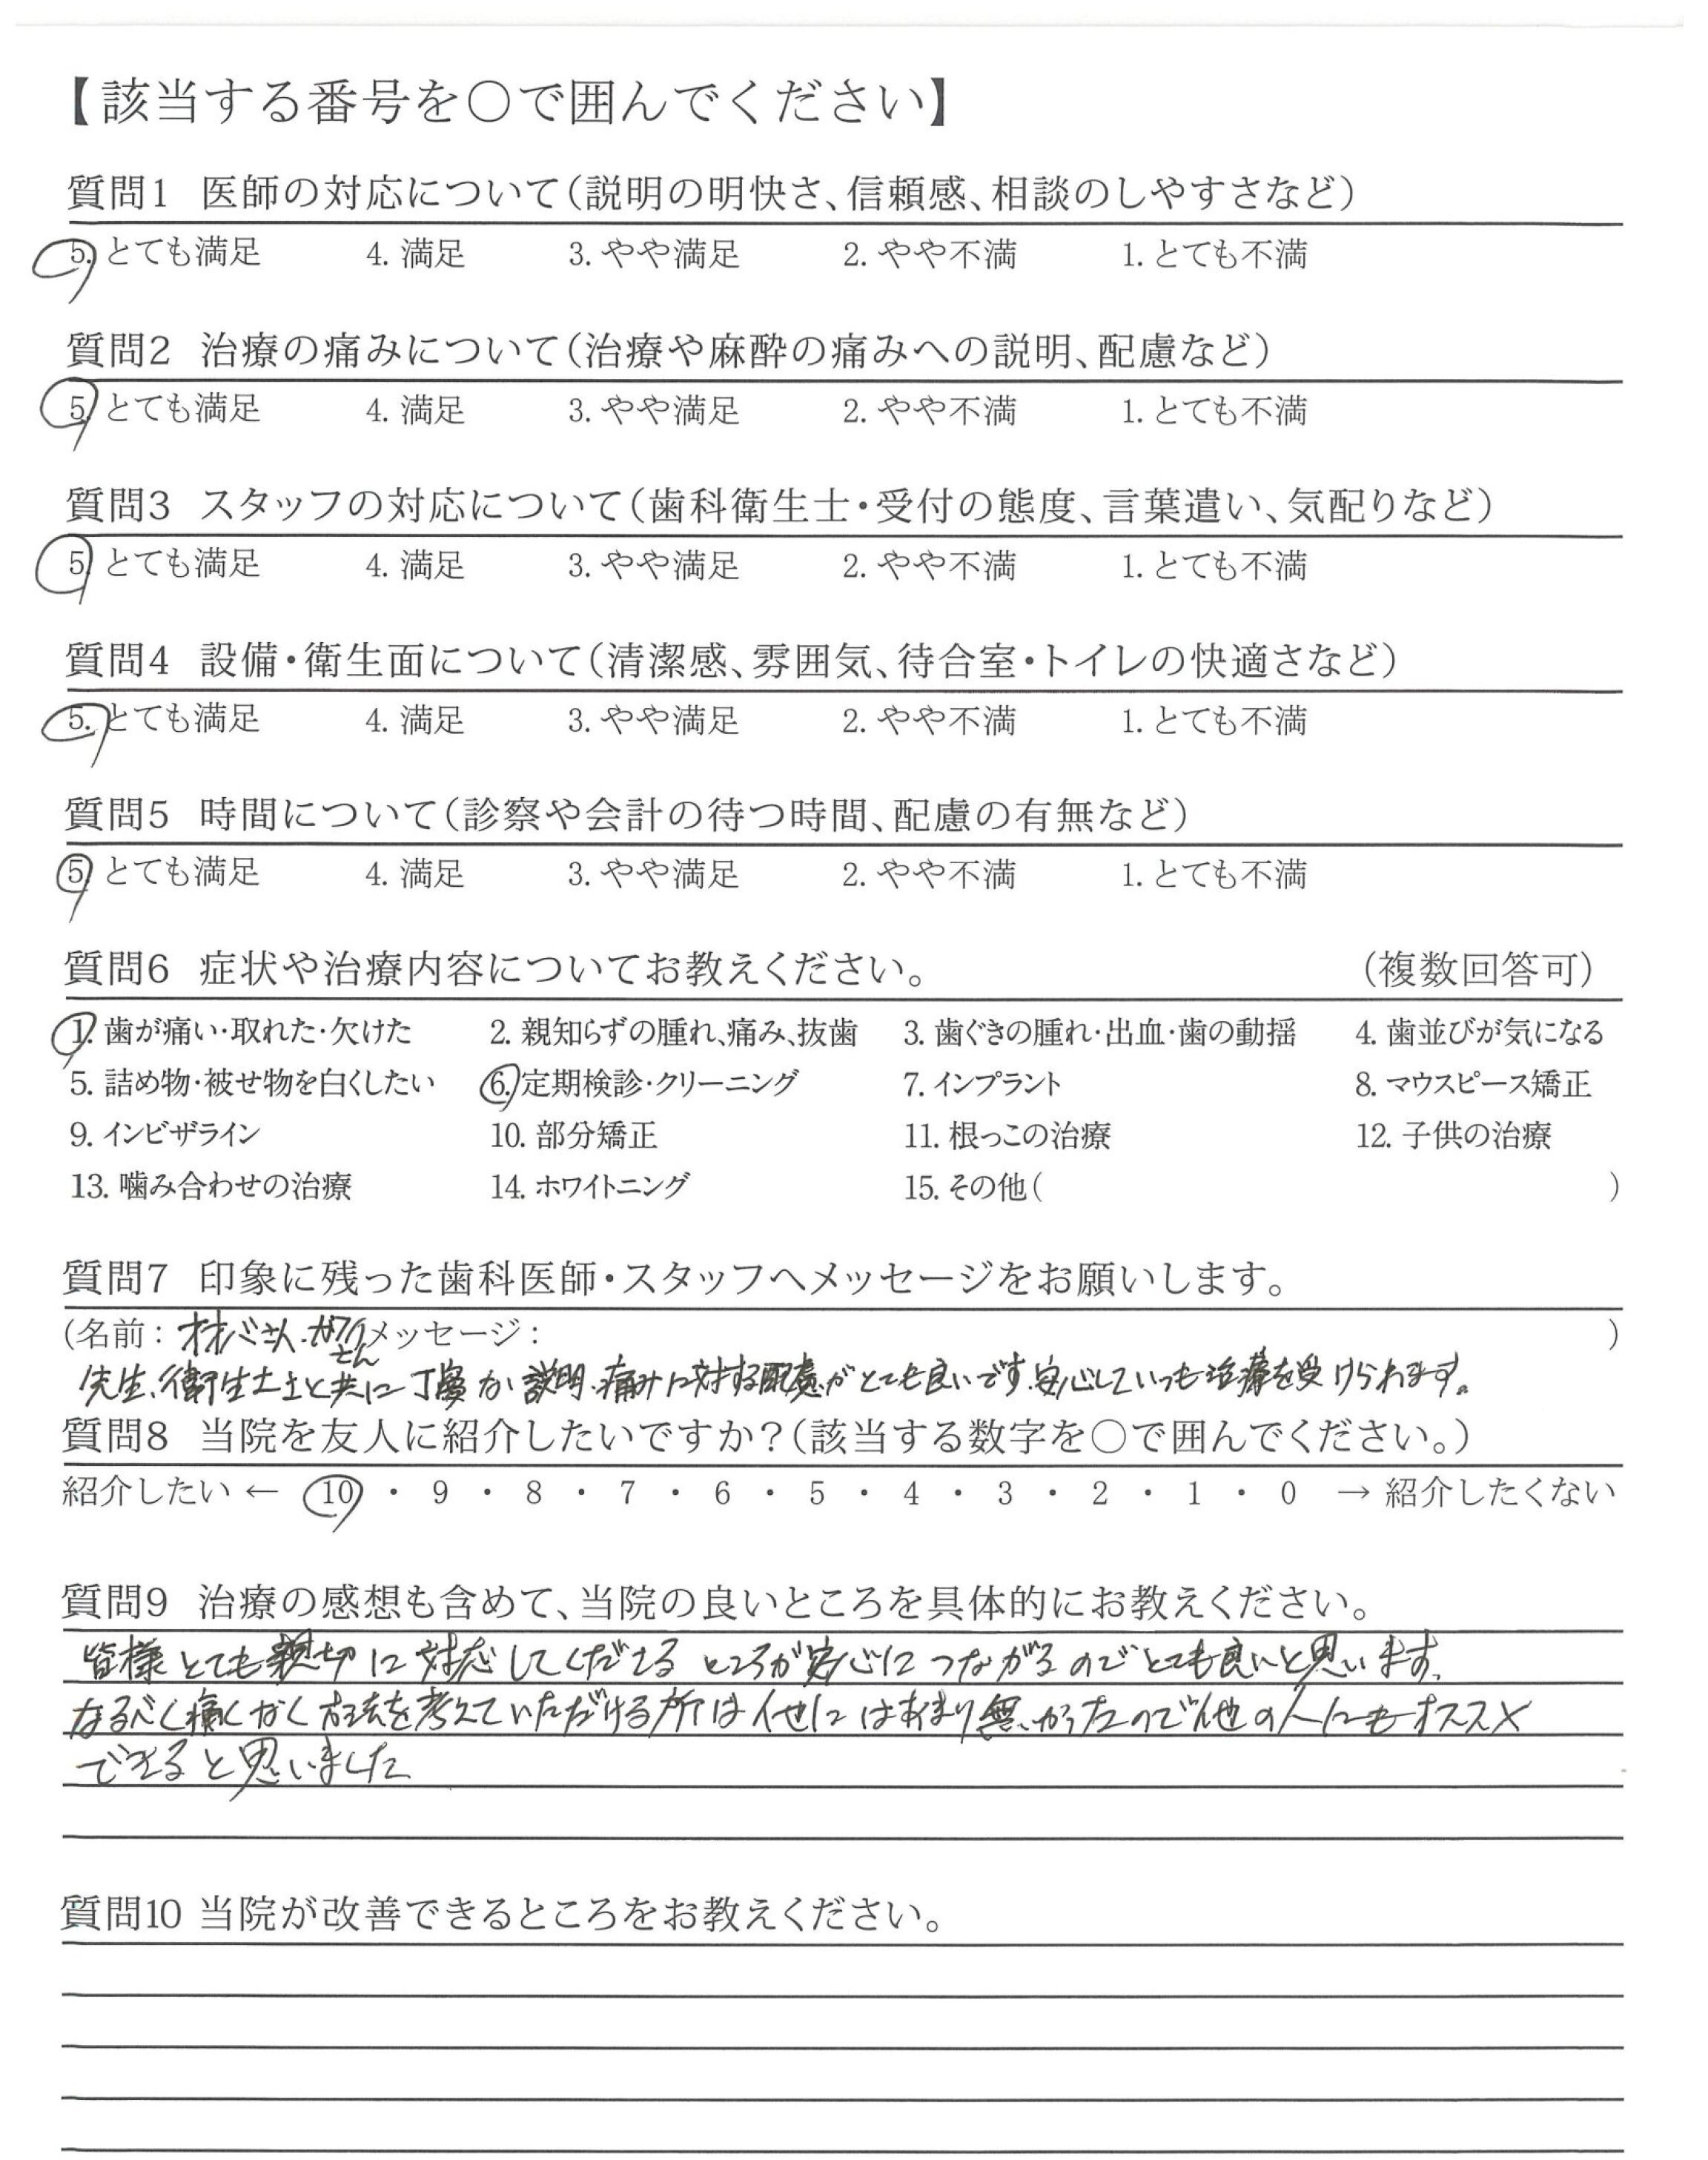 【該当する番号を○で囲んでください】
質問1 医師の対応について(説明の明快さ、信頼感、相談のしやすさなど)
5. とても満足 4. 満足 3. やや満足 2. やや不満 1. とても不満
質問2 治療の痛みについて(治療や麻酔の痛みへの説明、配慮など)
5. とても満足 4. 満足 3. やや満足 2. やや不満 1. とても不満
質問3 スタッフの対応について(歯科衛生士・受付の態度、言葉遣い、気配りなど)
5. とても満足 4. 満足 3. やや満足 2. やや不満 1. とても不満
質問4 設備・衛生面について(清潔感、雰囲気、待合室・トイレの快適さなど)
5. とても満足 4. 満足 3. やや満足 2. やや不満 1. とても不満
質問5 時間について(診察や会計の待つ時間、配慮の有無など)
5. とても満足 4. 満足 3. やや満足 2. やや不満 1. とても不満
質問6 症状や治療内容についてお教えください。 (複数回答可)
1. 歯が痛い・取れた・欠けた 2. 親知らずの腫れ、痛み、抜歯 3. 歯ぐきの腫れ・出血・歯の動揺 4. 歯並びが気になる
5. 詰め物・被せ物を白くしたい 6. 定期検診・クリーニング 7. インプラント 8. マウスピース矯正
9. インビザライン 10. 部分矯正 11. 根っこの治療 12. 子供の治療
13. 噛み合わせの治療 14. ホワイトニング 15. その他( )
質問7 印象に残った歯科医師・スタッフへメッセージをお願いします。
(名前: さん. さん メッセージ: )
先生、衛生士さと共に丁寧な説明、痛みに対する配慮がとても良いです、安心していつも治療を受けられます。
質問8 当院を友人に紹介したいですか?(該当する数字を○で囲んでください。)
紹介したい ← 10 ・ 9 ・ 8 ・ 7 ・ 6 ・ 5 ・ 4 ・ 3 ・ 2 ・ 1 ・ 0 → 紹介したくない
質問9 治療の感想も含めて、当院の良いところを具体的にお教えください。
皆様とても親切に対応してくださるところが安心につながるのでとても良いと思います、
なるべく痛くなく方法を考えていただける所は他にはあまり無かったので他の人にもオススメ
できると思いました
質問10 当院が改善できるところをお教えください。